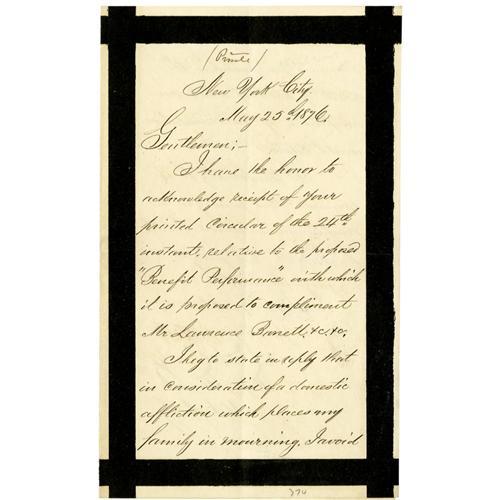 (Private)
New York City.
May 25th 1876.
Gentlemen;-
I have the honor to
acknowledge receipt of your
printed Circular of the 24th
instant, relative to the proposed
"Benefit Performance" with which
it is proposed to compliment
Mr Lawrence Barrett, &c &c,
I beg to state in reply that
in consideration of a domestic
affliction which places my
family in mourning, I avoid